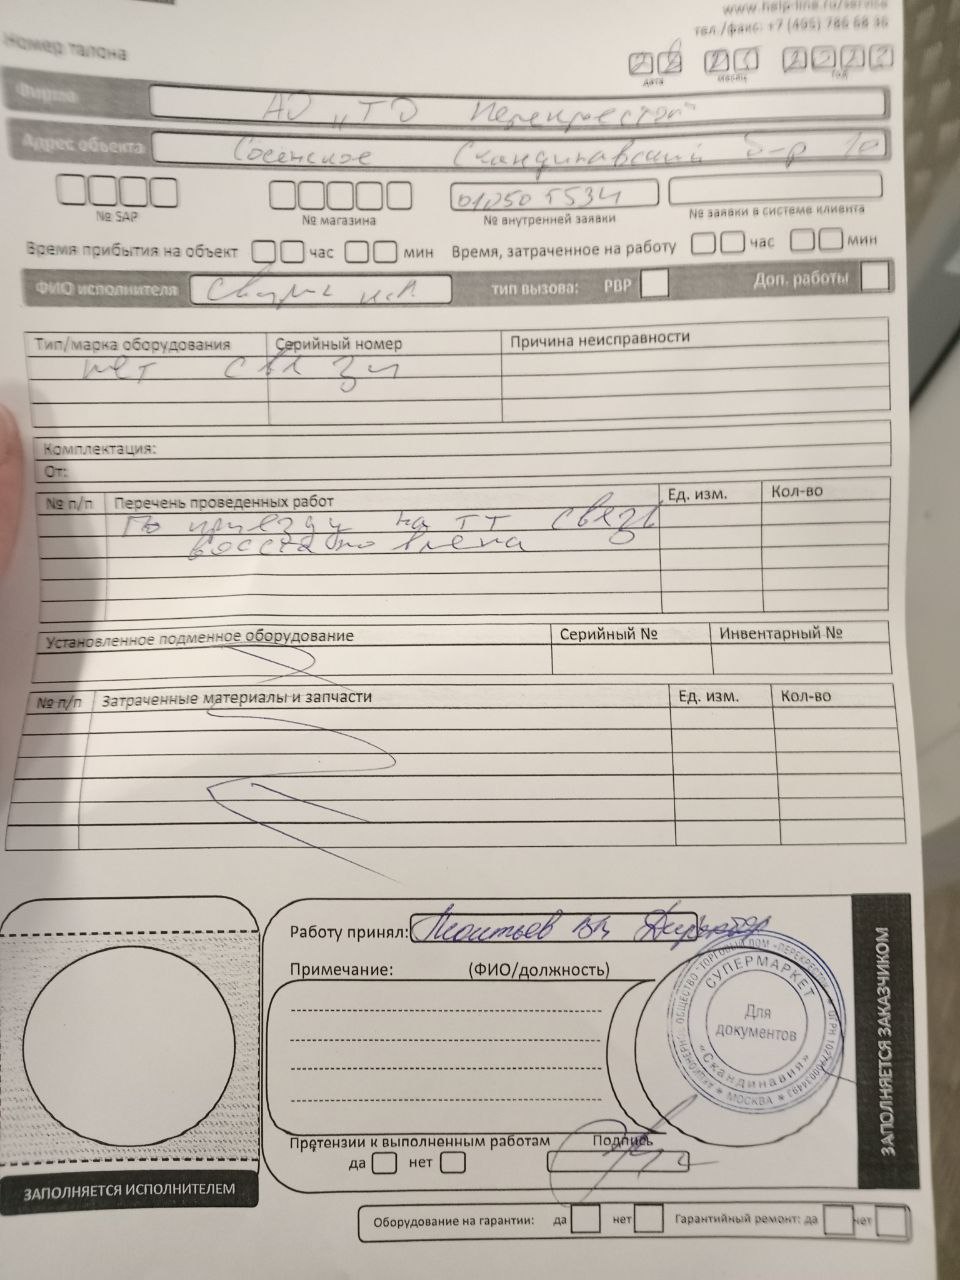 www.help-line.ru/service
тел./факс: +7 (495) 786 68 46
Номер талона
дата месяц год
Фирма АО „ТД Перекресток"
Адрес объекта Сосенское Скандинавский б-р 10
№ SAP № магазина № внутренней заявки № заявки в системе клиента
Время прибытия на объект час мин Время, затраченное на работу час мин
ФИО исполнителя тип вызова: РВР Доп. работы
Тип/марка оборудования Серийный номер Причина неисправности
нет связи
Комплектация:
От:
№ п/п Перечень проведенных работ Ед. изм. Кол-во
По приезду на ТТ связь
восстановлена
Установленное подменное оборудование Серийный № Инвентарный №
№ п/п Затраченные материалы и запчасти Ед. изм. Кол-во
Работу принял: Леонтьев Директор
Примечание: (ФИО/должность)
СУПЕРМАРКЕТ
Для
документов
«Скандинавия»
МОСКВА
Претензии к выполненным работам Подпись
да нет
ЗАПОЛНЯЕТСЯ ИСПОЛНИТЕЛЕМ
ЗАПОЛНЯЕТСЯ ЗАКАЗЧИКОМ
Оборудование на гарантии: да нет Гарантийный ремонт: да нет